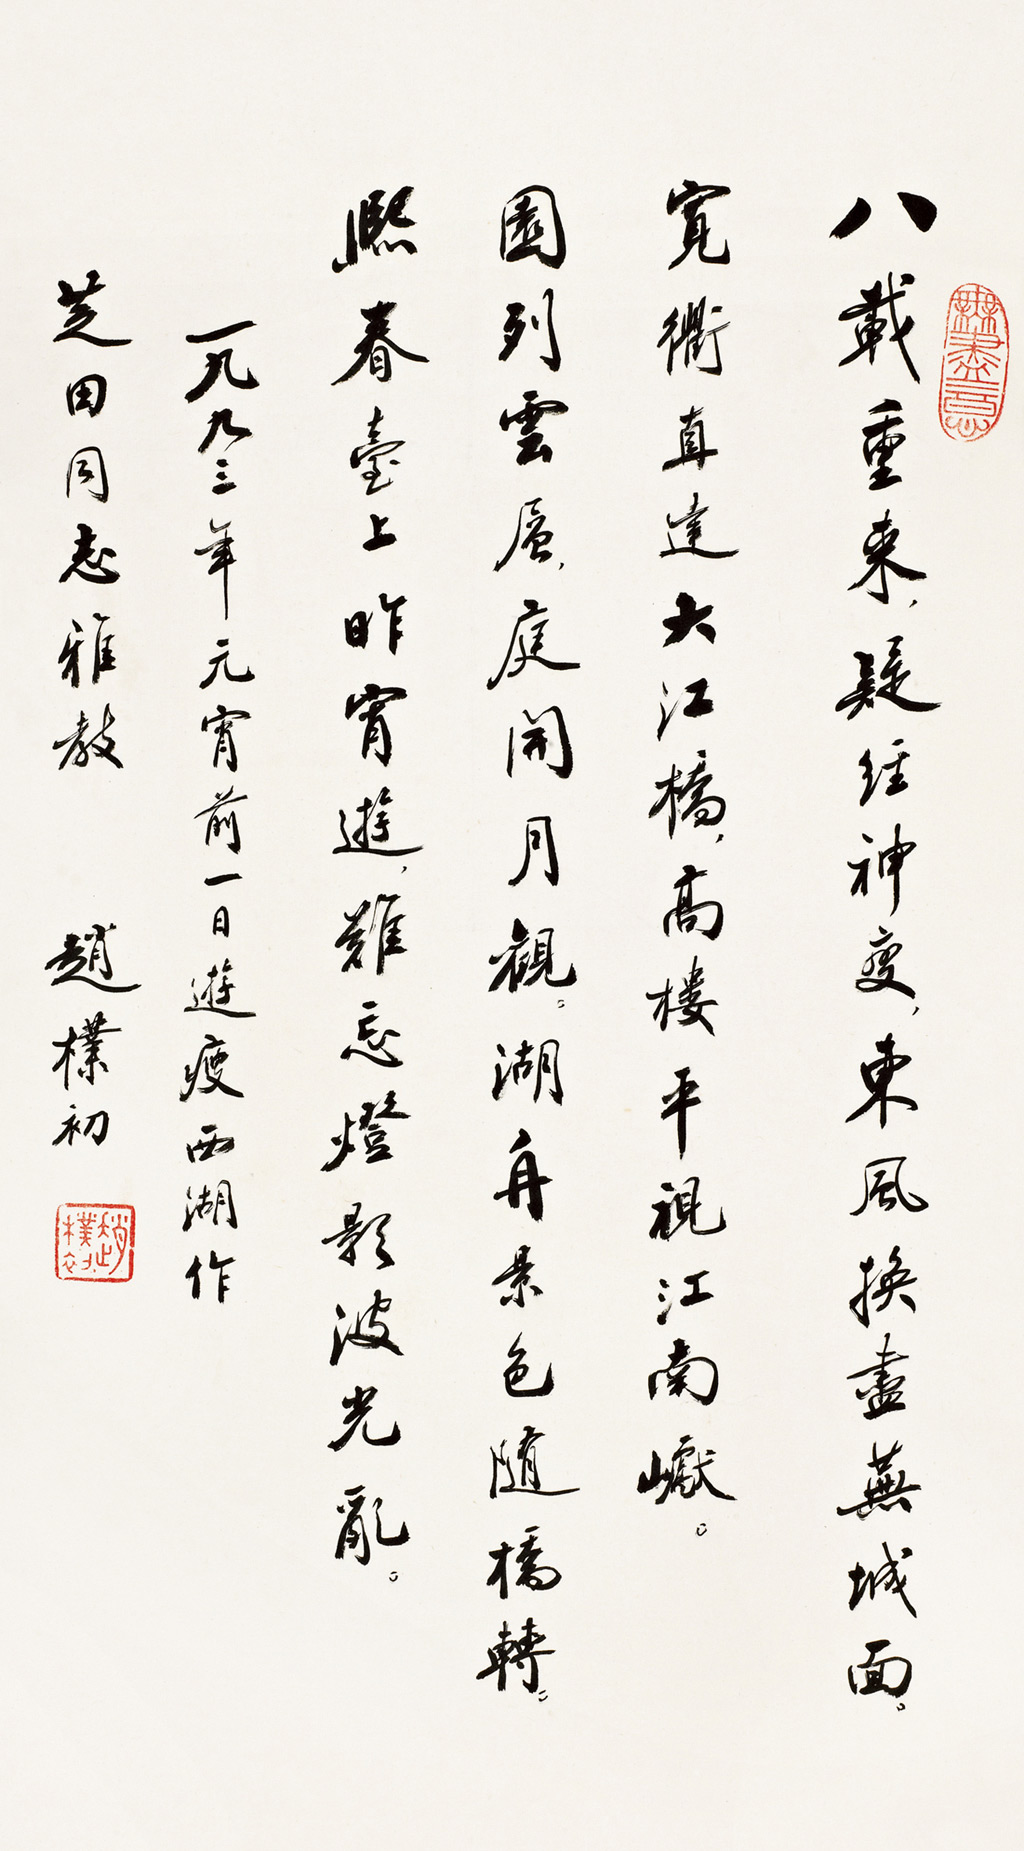 八載重來，疑經神變，東風換盡蕪城面。
寬衢直達大江橋，高樓平視江南巘。
園列雲屏，庭開月觀。湖舟景色隨橋轉。
熙春臺上昨宵遊，難忘燈影波光亂。
一九九三年元宵前一日遊瘦西湖作
芝田同志雅教
趙樸初
無盡意
趙樸初